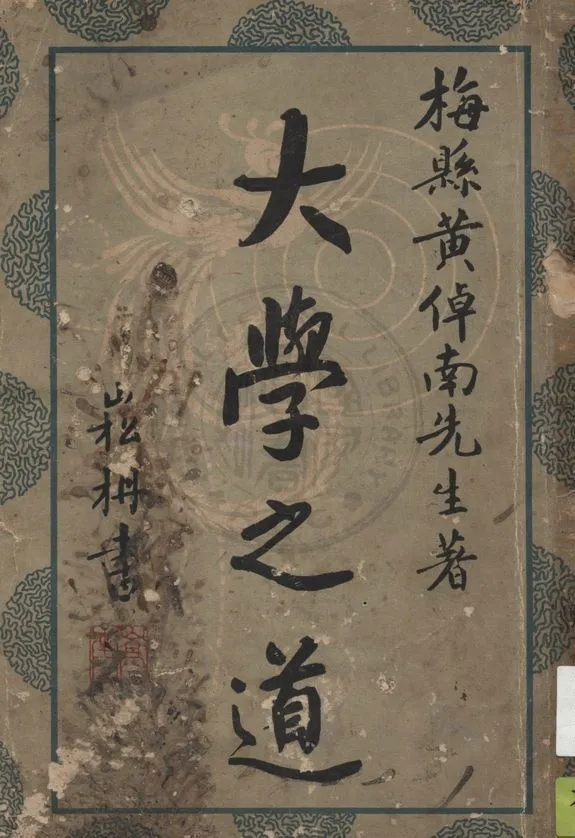 梅縣黃倬南先生著
大學之道
崧枬書